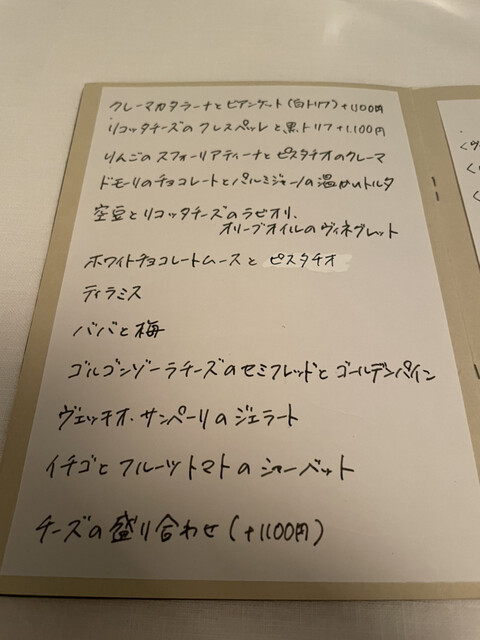 クレーマカタラーナとビアンケット(白トリフ)+1,100円
リコッタチーズのクレスペッレと黒トリフ+1,100円
りんごのスフォーリアティーナとピスタチオのクレーマ
ドモーリのチョコレートとパルミジャーノの温かいトルタ
空豆とリコッタチーズのラビオリ、
オリーブオイルのヴィネグレット
ホワイトチョコレートムースと ピスタチオ
ティラミス
ババと梅
ゴルゴンゾーラチーズのセミフレッドとゴールデンパイン
ヴェッキオ・サンペーリのジェラート
イチゴとフルーツトマトのシャーベット
チーズの盛り合わせ(+1,100円)